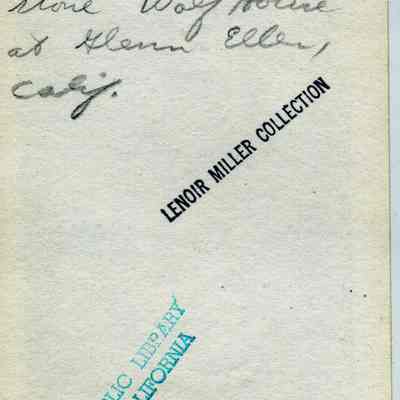 stone Wolf House
at Glenn Ellen,
Calif.
LENOIR MILLER COLLECTION
LIC LIBRARY
LIFORNIA